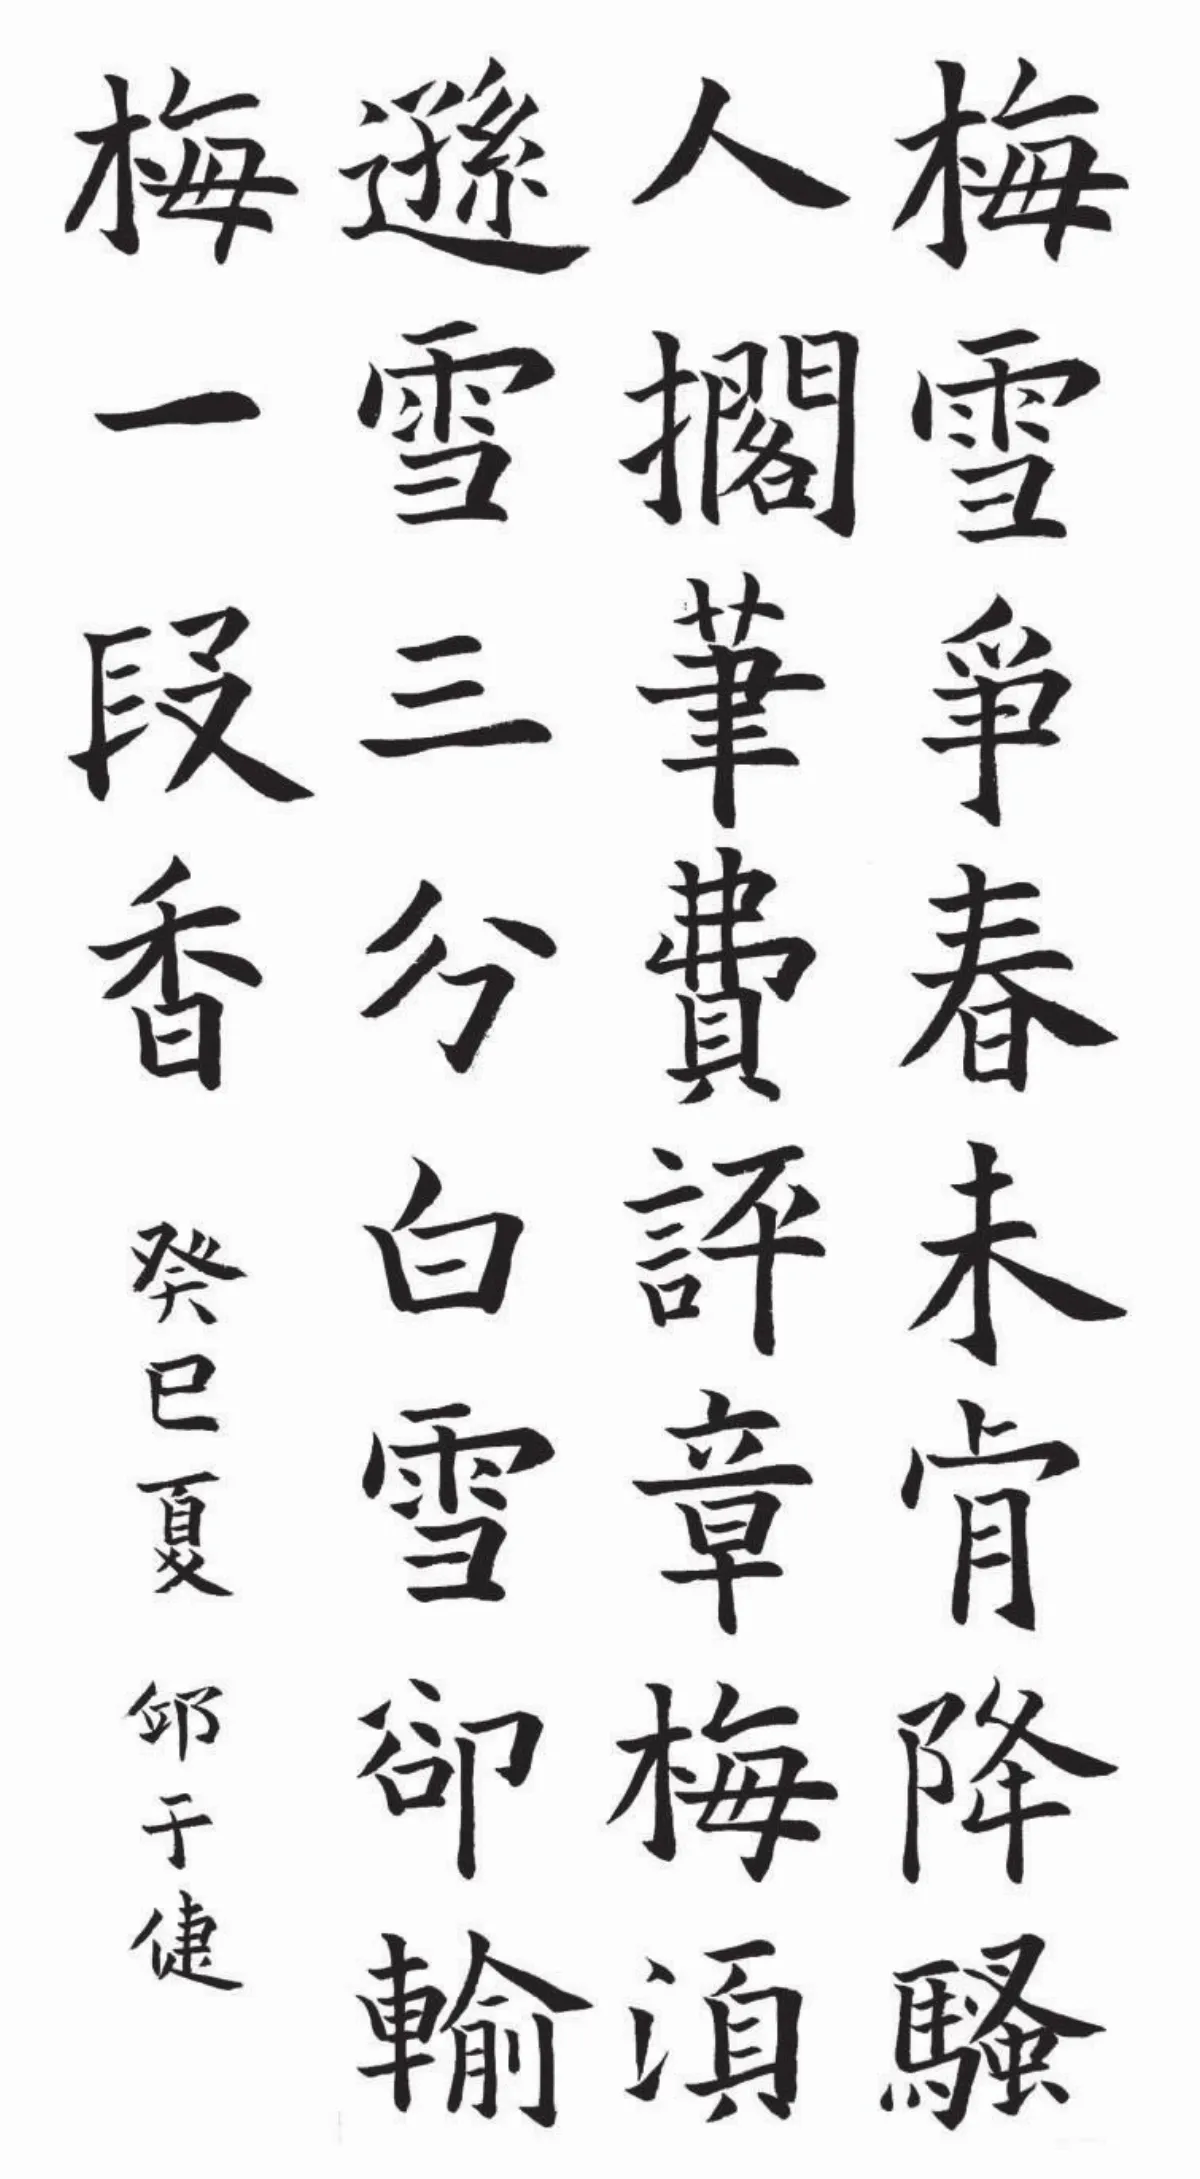 梅雪爭春未肯降騷
人擱筆費評章梅須
遜雪三分白雪卻輸
梅一段香 癸巳夏 邱于倢